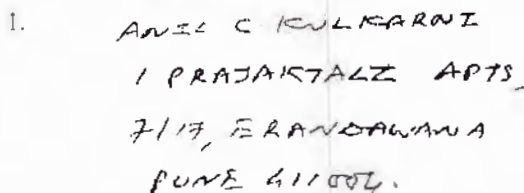 1. ANIL C KULKARNI
1 PRAJAKTALI APTS,
7/17, ERANDAWANA
PUNE 411004.